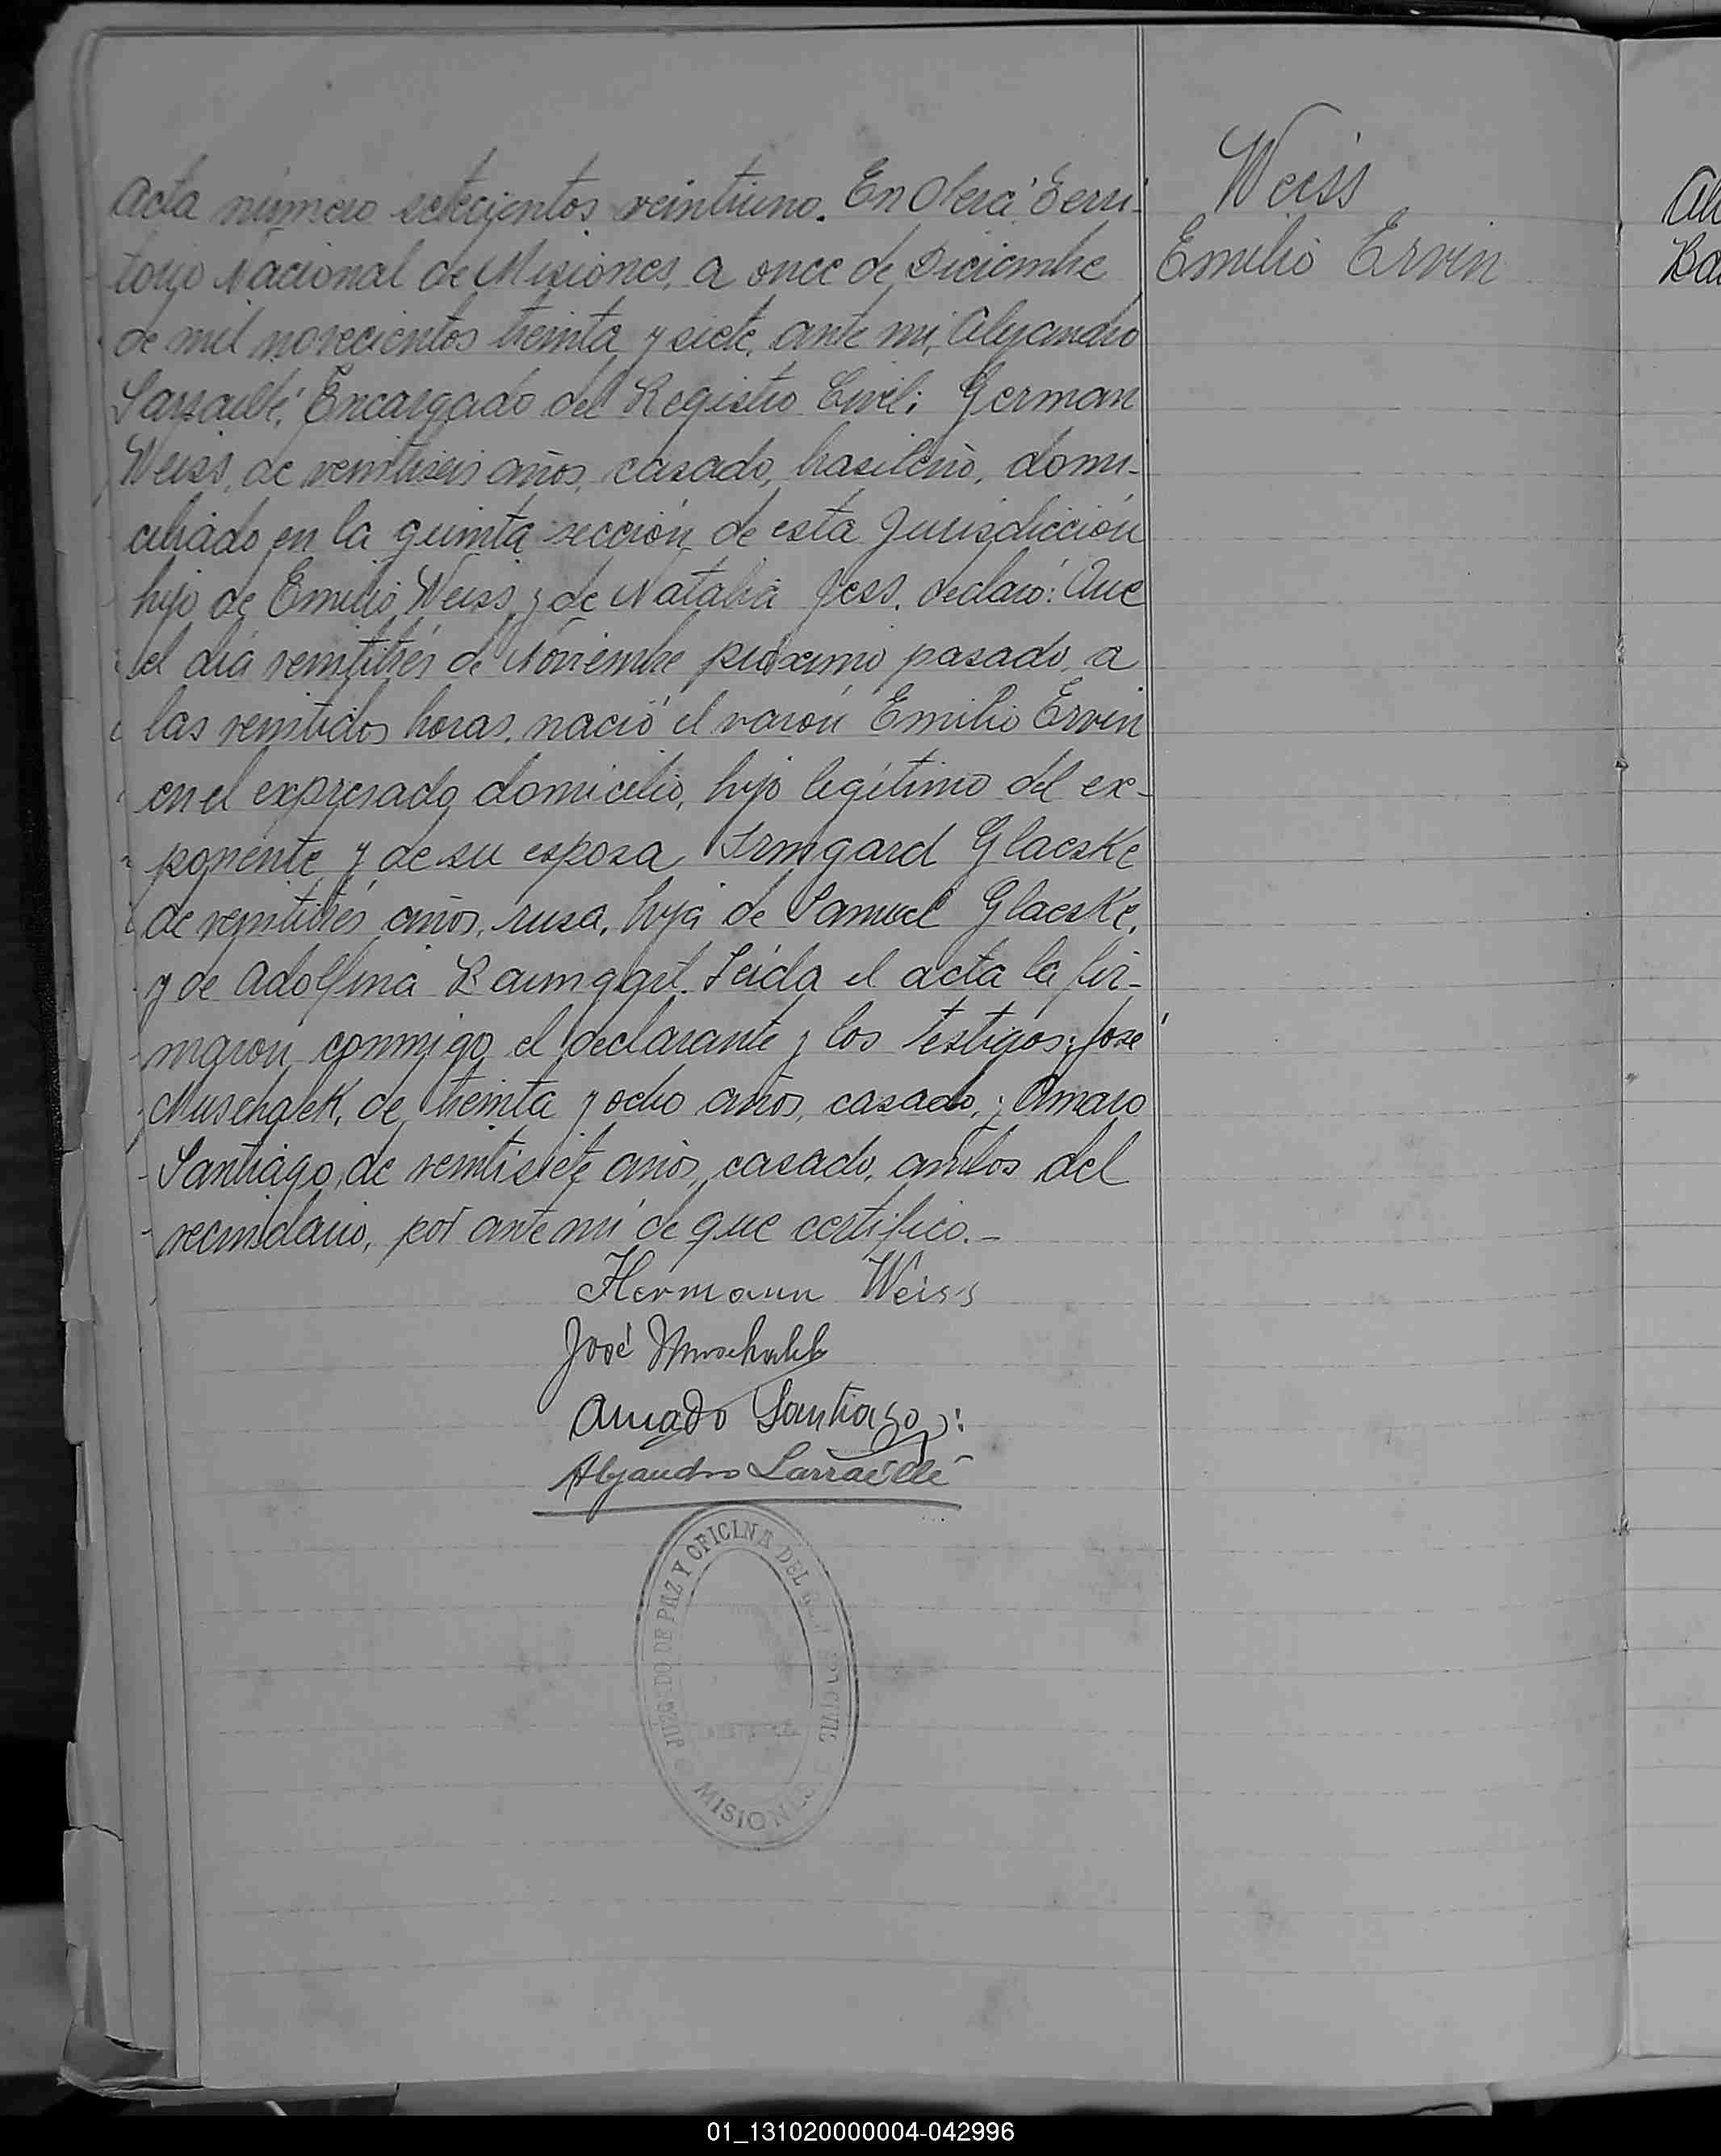 Acta número setecientos veintiuno. En Oberá, Terri-
torio Nacional de Misiones, a once de Diciembre
de mil novecientos treinta y siete, ante mí, Alejandro
Encargado del Registro Civil: German
Weiss, de veintiseis años, casado, brasileño, domi-
ciliado en la quinta sección de esta Jurisdicción
hijo de Emilio Weiss y de Natalia Jess, declaró: Que
el día veintitrés de Noviembre próximo pasado, a
las veintidos horas, nació el varón Emilio Ervin
en el expresado domicilio, hijo legítimo del ex-
ponente y de su esposa Irmgard Glaeske
de veintitrés años, rusa, hija de Samuel Glaeske,
y de Adolfina Baumgart. Leída el acta la fir-
maron conmigo el declarante y los testigos: José
Muschalek, de treinta y ocho años, casado, y Amaro
Santiago, de veintisiete años, casado, ambos del
vecindario, por ante mí de que certifico.-
Hermann Weiss
José
Amado Santiago
Alejandro
JUZGADO DE PAZ Y OFICINA DEL CIVIL
MISIONES
Weiss
Emilio Ervin
01_131020000004-042996